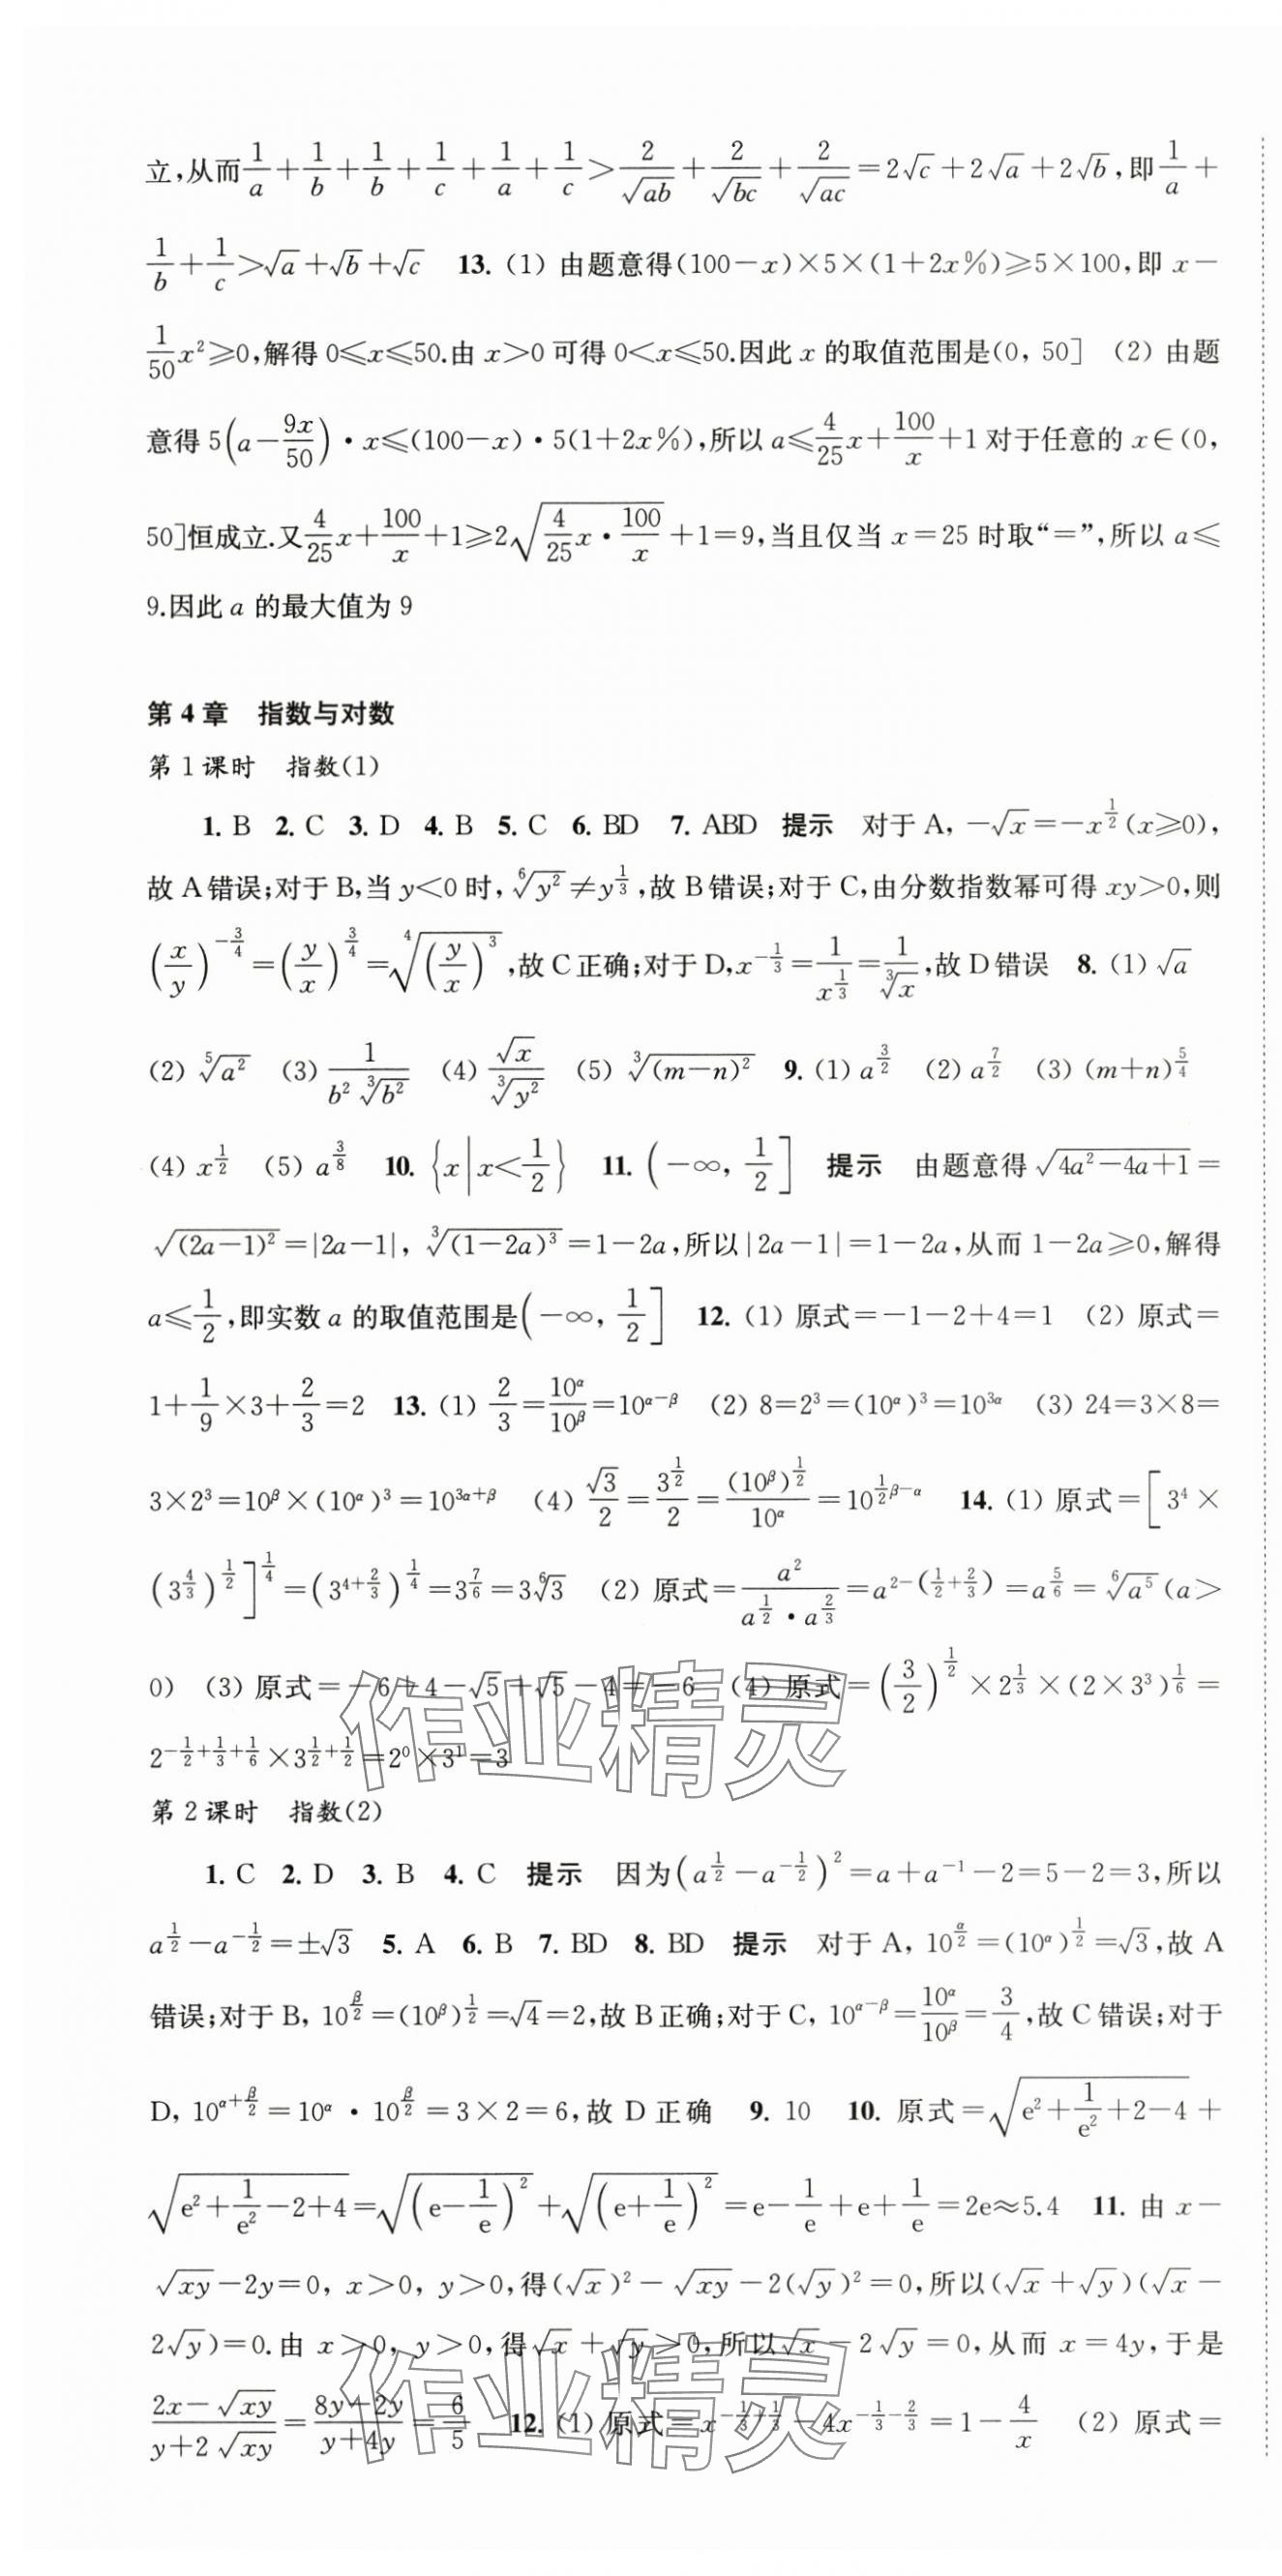 立,从而1/a+1/b+1/b+1/c+1/a+1/c>2/√(ab)+2/√(bc)+2/√(ac)=2√c+2√a+2√b,即1/a+
1/b+1/c>√a+√b+√c 13. (1) 由题意得(100-x)×5×(1+2x%)≥5×100,即 x-
1/50x²≥0,解得 0≤x≤50.由 x>0 可得 0<x≤50.因此 x 的取值范围是(0, 50] (2) 由题
意得 5(a-9x/50)·x≤(100-x)·5(1+2x%),所以 a≤4/25x+100/x+1 对于任意的 x∈(0,
50]恒成立.又4/25x+100/x+1≥2√(4/25x·100/x)+1=9,当且仅当 x=25 时取“=”,所以 a≤
9.因此 a 的最大值为 9
第 4 章 指数与对数
第 1 课时 指数(1)
1. B 2. C 3. D 4. B 5. C 6. BD 7. ABD 提示 对于 A, -√x=-x^(1/2)(x≥0),
故 A 错误;对于 B,当 y<0 时, ⁶√(y²)≠y^(1/3),故 B 错误;对于 C,由分数指数幂可得 xy>0,则
(x/y)^(-3/4)=(y/x)^(3/4)=⁴√((y/x)³),故 C 正确;对于 D,x^(-1/3)=1/x^(1/3)=1/³√x,故 D 错误 8. (1) √a
(2) ⁵√(a²) (3) 1/(b² ³√(b²)) (4) √x/³√(y²) (5) ³√((m-n)²) 9. (1) a^(3/2) (2) a^(7/2) (3) (m+n)^(5/4)
(4) x^(1/2) (5) a^(3/8) 10. {x|x<1/2} 11. (-∞, 1/2] 提示 由题意得 √(4a²-4a+1)=
√((2a-1)²)=|2a-1|, ³√((1-2a)³)=1-2a,所以|2a-1|=1-2a,从而 1-2a≥0,解得
a≤1/2,即实数 a 的取值范围是(-∞, 1/2] 12. (1) 原式=-1-2+4=1 (2) 原式=
1+1/9×3+2/3=2 13. (1) 2/3=10^α/10^β=10^(α-β) (2) 8=2³=(10^α)³=10^(3α) (3) 24=3×8=
3×2³=10^β×(10^α)³=10^(3α+β) (4) √3/2=3^(1/2)/2=(10^β)^(1/2)/10^α=10^(1/2β-α) 14. (1) 原式=[3⁴×
(3^(4/3))^(1/2)]^(1/4)=(3^(4+2/3))^(1/4)=3^(7/6)=3⁶√3 (2) 原式=a²/(a^(1/2)·a^(2/3))=a^(2-(1/2+2/3))=a^(5/6)=⁶√(a⁵)(a>
0) (3) 原式=-6+4-√5+√5-4=-6 (4) 原式=(3/2)^(1/2)×2^(1/3)×(2×3³)^(1/6)=
2^(-1/2+1/3+1/6)×3^(1/2+1/2)=2⁰×3¹=3
第 2 课时 指数(2)
1. C 2. D 3. B 4. C 提示 因为(a^(1/2)-a^(-1/2))²=a+a⁻¹-2=5-2=3,所以
a^(1/2)-a^(-1/2)=±√3 5. A 6. B 7. BD 8. BD 提示 对于 A, 10^(α/2)=(10^α)^(1/2)=√3,故 A
错误;对于 B, 10^(β/2)=(10^β)^(1/2)=√4=2,故 B 正确;对于 C, 10^(α-β)=10^α/10^β=3/4,故 C 错误;对于
D, 10^(α+β/2)=10^α·10^(β/2)=3×2=6,故 D 正确 9. 10 10. 原式=√(e²+1/e²+2-4)+
√(e²+1/e²-2+4)=√((e-1/e)²)+√((e+1/e)²)=e-1/e+e+1/e=2e≈5.4 11. 由 x-
√(xy)-2y=0, x>0, y>0,得(√x)²-√(xy)-2(√y)²=0,所以(√x+√y)(√x-
2√y)=0.由 x>0, y>0,得√x+√y>0,所以√x-2√y=0,从而 x=4y,于是
(2x-√(xy))/(y+2√(xy))=(8y-2y)/(y+4y)=6/5 12. (1) 原式=x^(-1/3+1/3)-4x^(-1/3-2/3)=1-4/x (2) 原式=
作业精灵
作业精灵